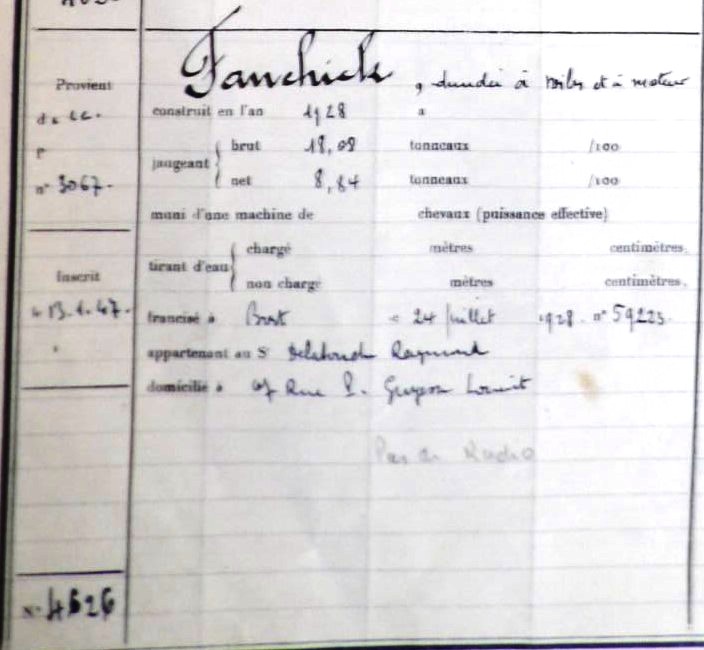 Provient
d. cc.
f°
n° 3067.
Inscrit
13.1.47.
N° 4626
Fanchick, dundée à voiles et à moteur
construit en l'an 1928 à
jaugeant { brut 18,08 tonneaux /100
net 8,84 tonneaux /100
muni d'une machine de chevaux (puissance effective)
tirant d'eau { chargé mètres centimètres.
non chargé mètres centimètres.
francisé à Brest le 24 juillet 1928. n° 59223.
appartenant au Sr Raymond
domicilié à Rue P. Guyesse Lorient
Pas de Radio